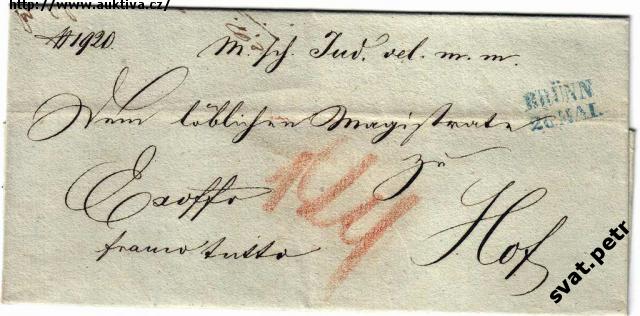 http://www.auktiva.cz/
1920.
M. sch. Jud. del. m. m.
BRÜNN
26 MAI.
Dem löblichen Magistrate
zu
Exoffo
Hof
franco tutto
svat.petr